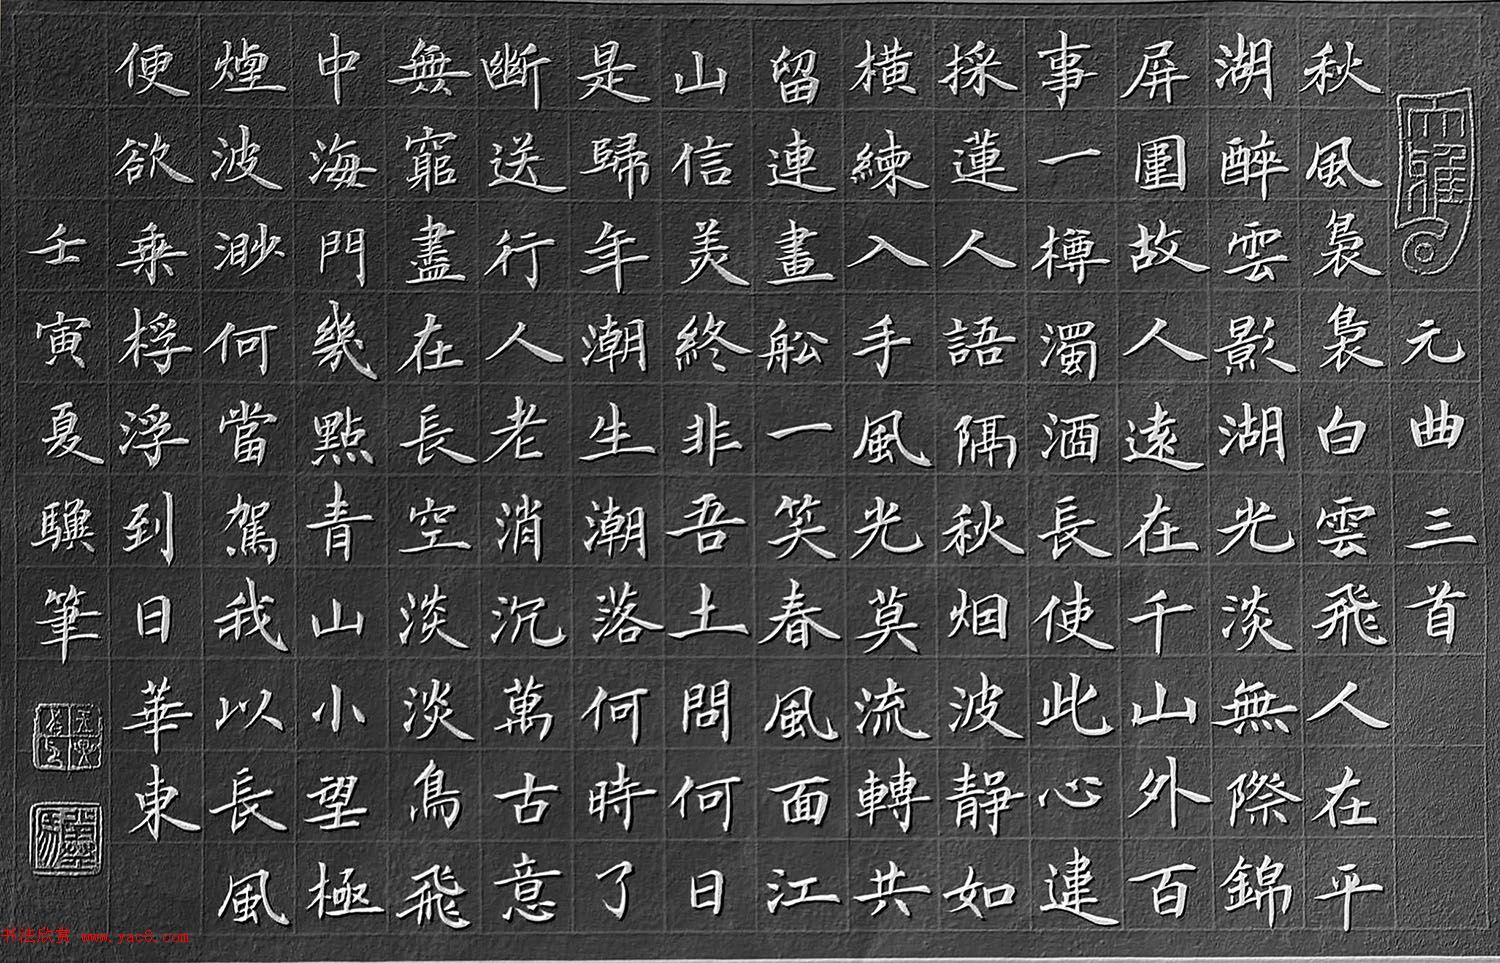 元曲三首
秋風裊裊白雲飛人在平
湖醉雲影湖光淡無際錦
屏圍故人遠在千山外百
事一樽濁酒長使此心違
採蓮人語隔秋烟波靜如
橫練入手風光莫流轉共
留連畫舩一笑春風面江
山信美終非吾土問何日
是歸年潮生潮落何時了
斷送行人老消沉萬古意
無窮盡在長空淡淡鳥飛
中海門幾點青山小望極
煙波渺何當駕我以長風
便欲乘桴浮到日華東
壬寅夏驥筆
书法欣赏 www.yac8.com